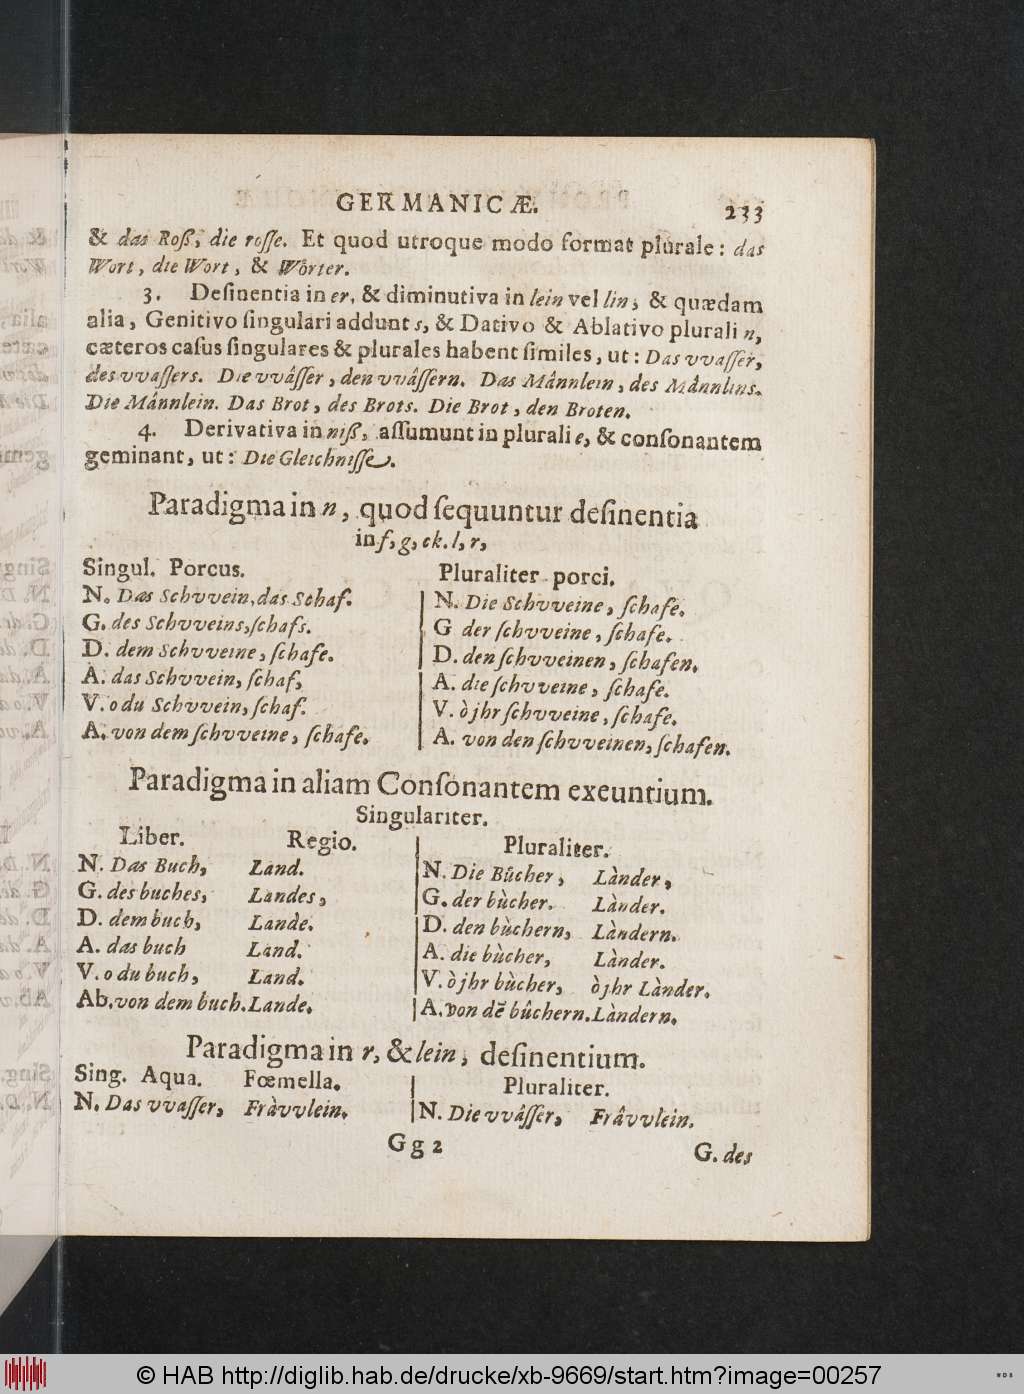 GERMANICÆ. 233
& das Roß, die rosse. Et quod utroque modo format plurale: das
Wort, die Wort, & Wôrter.
3. Desinentia in er, & diminutiva in lein vel lin, & quædam
alia, Genitivo singulari addunt s, & Dativo & Ablativo plurali n,
cæteros casus singulares & plurales habent similes, ut: Das vvasser,
des vvassers. Die vvâsser, den vvâssern. Das Mânnlein, des Mânnlins.
Die Mânnlein. Das Brot, des Brots. Die Brot, den Broten.
4. Derivativa in niß, assumunt in plurali e, & consonantem
geminant, ut: Die Gleichnisse.
Paradigma in n, quod sequuntur desinentia
in f, g, ck. l, r,
Singul. Porcus.
N. Das Schvvein, das Schaf.
G. des Schvveins, schafs.
D. dem Schvveine, schafe.
A. das Schvvein, schaf,
V. o du Schvvein, schaf.
A. von dem schvveine, schafe.
Pluraliter porci.
N. Die Schvveine, schafe.
G der schvveine, schafe.
D. den schvveinen, schafen.
A. die schvveine, schafe.
V. ò jhr schvveine, schafe.
A. von den schvveinen, schafen.
Paradigma in aliam Consonantem exeuntium.
Singulariter.
Liber. Regio.
N. Das Buch, Land.
G. des buches, Landes,
D. dem buch, Lande.
A. das buch Land.
V. o du buch, Land.
Ab. von dem buch. Lande.
Pluraliter.
N. Die Bûcher, Lànder,
G. der bùcher. Lànder.
D. den bùchern, Làndern.
A. die bùcher, Lànder.
V. ò jhr bùcher, ò jhr Lànder.
A. von dē bûchern. Làndern.
Paradigma in r, & lein, desinentium.
Sing. Aqua. Fœmella.
N. Das vvasser, Fràvvlein.
Pluraliter.
N. Die vvâsser, Frâvvlein.
Gg 2 G. des
© HAB http://diglib.hab.de/drucke/xb-9669/start.htm?image=00257